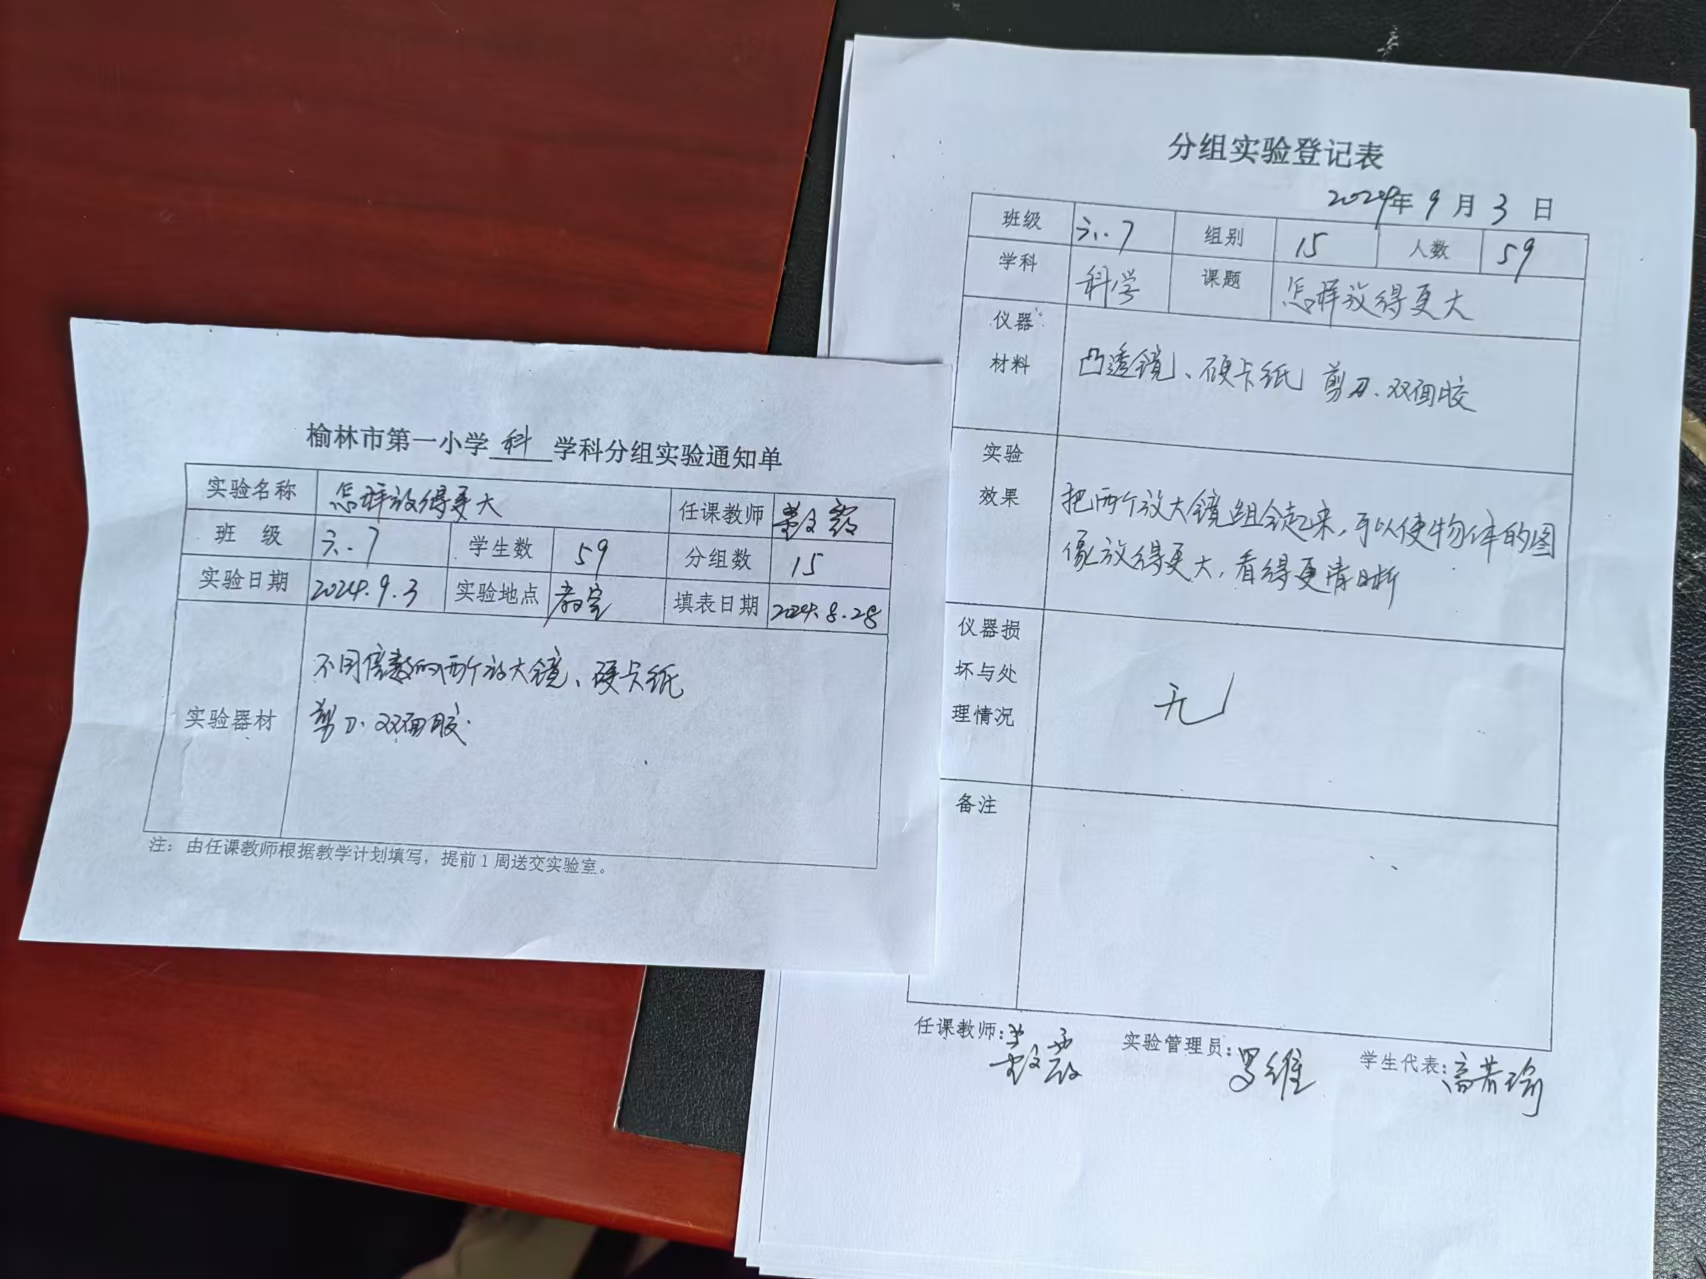 榆林市第一小学 科 学科分组实验通知单
实验名称 怎样放得更大 任课教师
班 级 六.7 学生数 59 分组数 15
实验日期 2024.9.3 实验地点 教室 填表日期 2024.8.28
实验器材
不同倍数的两个放大镜、硬卡纸
剪刀、双面胶.
注：由任课教师根据教学计划填写，提前1周送交实验室。
分组实验登记表
2024年 9 月 3 日
班级 六.7 组别 15 人数 59
学科 科学 课题 怎样放得更大
仪器
材料
凸透镜、硬卡纸 剪刀、双面胶
实验
效果
把两个放大镜组合起来，可以使物体的图
像放得更大，看得更清晰
仪器损
坏与处
理情况
无
备注
任课教师： 实验管理员：罗维 学生代表：高芳瑜